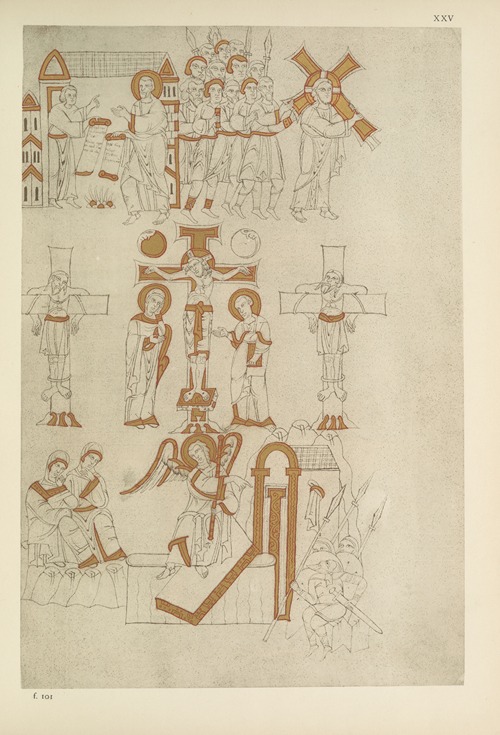 XXV
f. 101